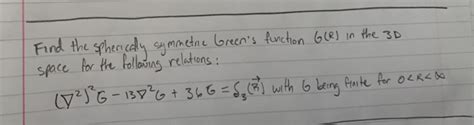 Find the spherically symmetric Green's function G(R) in the 3D
space for the following relations:
(∇²)²G - 13∇²G + 36G = δ₃(R⃗) with G being finite for 0<R<∞